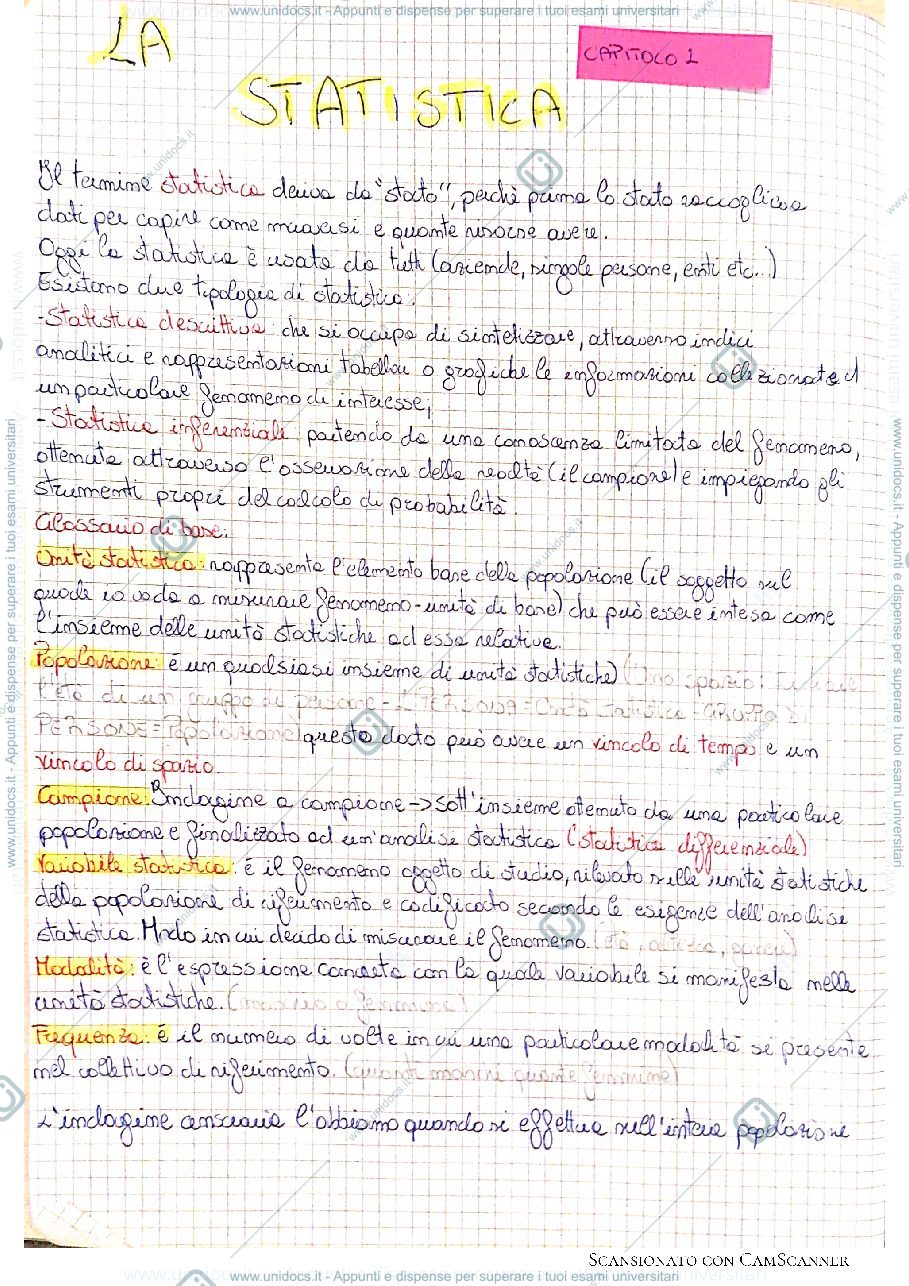 www.unidocs.it - Appunti e dispense per superare i tuoi esami universitari
LA
CAPITOLO 1
STATISTICA
Il termine statistica deriva da "stato", perchè prima lo stato raccoglieva
dati per capire come muoversi e quante risorse avere.
Oggi la statistica è usata da tutti (aziende, singole persone, enti etc...)
Esistono due tipologie di statistica:
-Statistica descrittiva: che si occupa di sintetizzare, attraverso indici
analitici e rappresentazioni tabellari o grafiche le informazioni collezionate
un particolare fenomeno di interesse;
- Statistica inferenziale: partendo da una conoscenza limitata del fenomeno,
ottenuta attraverso l'osservazione della realtà (il campione) e impiegando gli
strumenti propri del calcolo di probabilità.
Glossario di base:
Unità statistica: rappresenta l'elemento base della popolazione (il soggetto sul
quale io vado a misurare fenomeno-unità di base) che può essere intesa come
l'insieme delle unità statistiche ad essa relative.
Popolazione: è un qualsiasi insieme di unità statistiche)
l'età di un gruppo di persone - 1 PERSONA = Unità statistica - GRUPPO
PERSONE = Popolazione) questo dato può avere un vincolo di tempo e un
vincolo di spazio.
Campione: Indagine a campione -> sott'insieme otenuto da una particolare
popolazione e finalizzato ad un'analisi statistica (statistica differenziale)
Variabile statistica: é il fenomeno oggetto di studio, rilevato sulle unità statistiche
della popolazione di riferimento e codificato secondo le esigenze dell'analisi
statistica. Modo in cui decido di misurare il fenomeno. (età, altezza,
Modalità: è l'espressione concreta con la quale variabile si manifesta nelle
unità statistiche. (maschio o femmina)
Frequenza: é il numero di volte in cui una particolare modalità si presenta
nel collettivo di riferimento. (quanti maschi quante femmine)
L'indagine censuaria l'abbiamo quando si effettua sull'intera popolazione
SCANSIONATO CON CAMSCANNER
www.unidocs.it - Appunti e dispense per superare i tuoi esami universitari